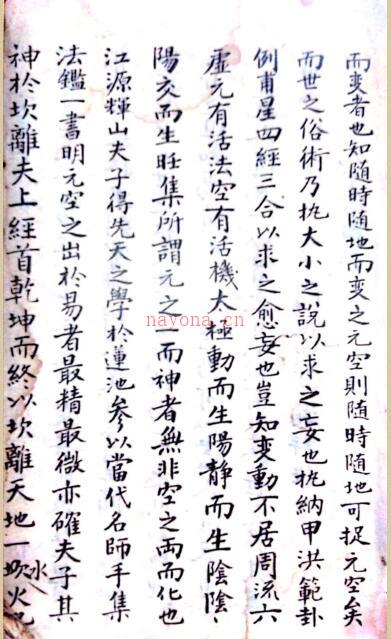 而变者也知随時随地而变之元空則随時随地可捉元空矣
而世之俗術乃执大小之説以求之妄也执納甲洪範卦
例甫星四經三合以求之愈妄也豈知变動不居周流六
虚元有活法空有活機太極動而生陽静而生陰陰、
陽交而生旺集所謂元之一而神者無非空之両而化也
江源輝山夫子得先天之學於蓮池参以當代名師手集
法鑑一書明元空之出於易者最精最微亦確夫子其
神於坎離夫上經首乾坤而終以坎離天地一坎水火
nayona.cn